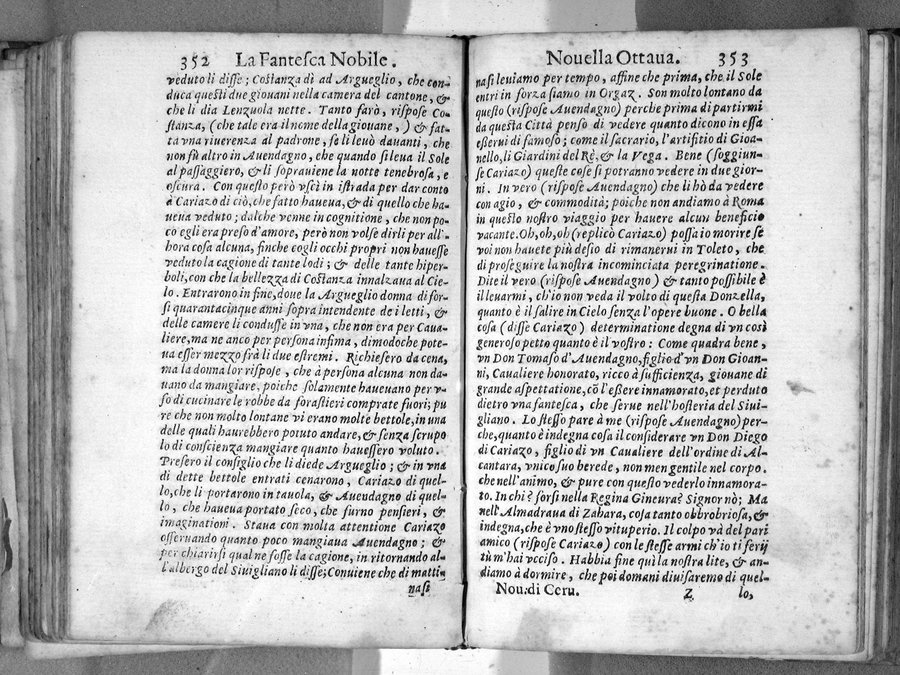 352 La Fantesca Nobile.
veduto li disse; Costanza dì ad Argueglio, che con-
duca questi due giovani nella camera del cantone, &
che li dia Lenzuola nette. Tanto farò, rispose Co-
stanza, (che tale era il nome della giouane, ) & fat-
ta vna riuerenza al padrone, se li leuò dauanti, che
non fù altro in Auendagno, che quando si leua il Sole
al passaggiero, & li soprauiene la notte tenebrosa, e
oscura. Con questo però vscì in istrada per dar conto
à Cariazo di ciò, che fatto haueua, & di quello che ha-
ueua veduto; dalche venne in cognitione, che non po-
co egli era preso d'amore, però non volse dirli per all'-
hora cosa alcuna, finche cogli occhi propri non hauesse
veduto la cagione di tante lodi; & delle tante hiper-
boli, con che la bellezza di Costanza innalzaua al Cie-
lo. Entrarono in fine, doue la Argueglio donna di for-
si quarantacinque anni sopra intendente de i letti, &
delle camere li condusse in vna, che non era per Caua-
liere, ma ne anco per persona infima, dimodoche pote-
ua esser mezzo frà li due estremi. Richiesero da cena,
ma la donna lor rispose, che à persona alcuna non da-
uano da mangiare, poiche solamente haueuano per v-
so di cucinare le robbe da forastieri comprate fuori; pu
re che non molto lontane vi erano molte bettole, in una
delle quali haurebbero potuto andare, & senza scrupo
lo di conscienza mangiare quanto hauessero voluto.
Presero il consiglio che li diede Argueglio; & in vna
di dette bettole entrati cenarono, Cariazo di quel-
lo, che li portarono in tauola, & Auendagno di quel-
lo, che haueua portato seco, che furno pensieri, &
imaginationi. Staua con molta attentione Cariazo
osseruando quanto poco mangiaua Auendagno; &
per chiarirsi qual ne fosse la cagione, in ritornando al-
l'albergo del Siuigliano li disse; Conuiene che di mattì-
nasi
Nouella Ottaua. 353
nasi leuiamo per tempo, affine che prima, che il Sole
entri in forza siamo in Orgaz. Son molto lontano da
questo (rispose Auendagno) perche prima di partirmi
da questa Città penso di vedere quanto dicono in essa
esserui di famoso; come il sacrario, l'artifitio di Gioa-
nello, li Giardini del Rè, & la Vega. Bene (soggiun-
se Cariazo) queste cose si potranno vedere in due gior-
ni. In vero (rispose Auendagno) che li hò da vedere
con agio, & commodità; poiche non andiamo à Roma
in questo nostro viaggio per hauere alcun beneficio
vacante. Oh, oh, oh (replicò Cariazo) possa io morire se
voi non hauete più desio di rimanerui in Toleto, che
di proseguire la nostra incominciata peregrinatione.
Dite il vero (rispose Auendagno) & tanto possibile è
il leuarmi, ch'io non veda il volto di questa Donzella,
quanto è il salire in Cielo senza l'opere buone. O bella
cosa (disse Cariazo) determinatione degna di vn così
generoso petto quanto è il vostro: Come quadra bene,
vn Don Tomaso d'Auendagno, figlio d'vn Don Gioan-
ni, Caualiere honorato, ricco à sufficienza, giouane di
grande aspettatione, cō l'essere innamorato, et perduto
dietro vna fantesca, che serue nell'hosteria del Siui-
gliano. Lo stesso pare à me (rispose Auendagno) per-
che, quanto è indegna cosa il considerare vn Don Diego
di Cariazo, figlio di vn Caualiere dell'ordine di Al-
cantara, vnico suo herede, non men gentile nel corpo.
che nell'animo, & pure con questo vederlo innamora-
to. In chi? forsi nella Regina Gineura? Signor nò; Ma
nell'Almadraua di Zahara, cosa tanto obbrobriosa, &
indegna, che è vno stesso vituperio. Il colpo và del pari
amico (rispose Cariazo) con le stesse armi ch'io ti ferij
tù m'hai vcciso. Habbia fine quì la nostra lite, & an-
diamo à dormire, che poi domani diuisaremo di quel-
Nou. di Ceru. Z lo,